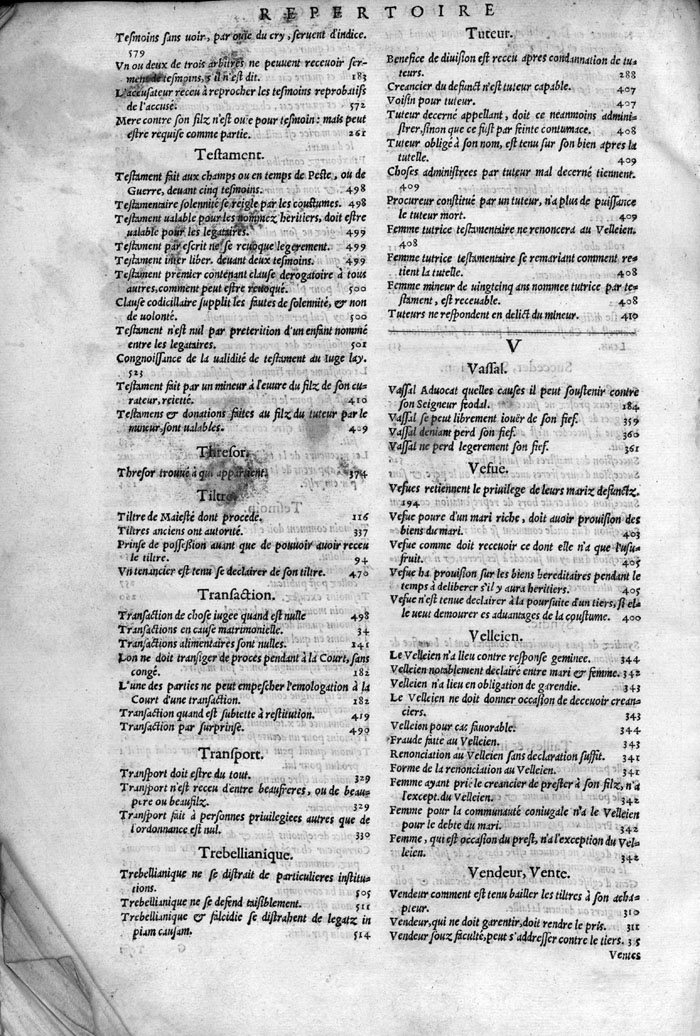 REPERTOIRE
Tesmoins sans uoir, par ouïe du cry, seruent d'indice.
579
Vn ou deux de trois arbitres ne peuuent receuoir ser-
ment de tesmoins, s'il n'est dit. 183
L'accusateur receu à reprocher les tesmoins reprobatifs
de l'accusé. 572
Mere contre son filz n'est ouïe pour tesmoin: mais peut
estre requise comme partie. 261
Testament.
Testament fait aux champs ou en temps de Peste, ou de
Guerre, deuant cinq tesmoins. 498
Testamentaire solennité se reigle par les coustumes. 498
Testament ualable pour les nommez heritiers, doit estre
ualable pour les legataires. 499
Testament par escrit ne se reuoque legerement. 499
Testament inter liber. deuant deux tesmoins. 499
Testament premier contenant clause derogatoire à tous
autres, comment peut estre reuoqué. 500
Clause codicillaire supplit les fautes de solennité, & non
de uolonté. 500
Testament n'est nul par preterition d'un enfant nommé
entre les legataires. 501
Congnoissance de la ualidité de testament au Iuge lay.
523
Testament fait par un mineur à l'euure du filz de son cu-
rateur, reietté. 410
Testamens & donations faites au filz du tuteur par le
mineur, sont ualables. 409
Thresor.
Thresor trouué à qui appartient. 374
Tiltre.
Tiltre de Maiesté dont procede. 116
Tiltres anciens ont autorité. 337
Prinse de possession auant que de pouuoir auoir receu
le tiltre. 94
Vn tenancier est tenu se declairer de son tiltre. 470
Transaction.
Transaction de chose iugee quand est nulle 498
Transactions en cause matrimonielle. 34
Transactions alimentaires sont nulles. 141
Lon ne doit transiger de proces pendant à la Court, sans
congé. 182
L'une des parties ne peut empescher l'emologation à la
Court d'une transaction. 182
Transaction quand est subiette à restitution. 419
Transaction par surprinse. 490
Transport.
Transport doit estre du tout. 329
Transport n'est receu d'entre beaufreres, ou de beau-
pere ou beaufilz. 329
Transport fait à personnes priuilegiees autres que de
l'ordonnance est nul. 330
Trebellianique.
Trebellianique ne se distrait de particulieres institu-
tions. 505
Trebellianique ne se defend taisiblement. 511
Trebellianique & falcidie se distrahent de legatz in
piam causam. 514
Tuteur.
Benefice de diuision est receu apres condannation de tu-
teurs. 288
Creancier du defunct n'est tuteur capable. 407
Voisin pour tuteur. 407
Tuteur decerné appellant, doit ce neanmoins admini-
strer, sinon que ce fust par feinte contumace. 408
Tuteur obligé à son nom, est tenu sur son bien apres la
tutelle. 409
Choses administrees par tuteur mal decerné tiennent.
409
Procureur constitué par un tuteur, n'a plus de puissance
le tuteur mort. 409
Femme tutrice testamentaire ne renoncera au Velleien.
408
Femme tutrice testamentaire se remariant comment re-
tient la tutelle. 408
Femme mineur de uingtcinq ans nommee tutrice par te-
stament, est receuable. 408
Tuteurs ne respondent en delict du mineur. 410
V
Vassal.
Vassal Aduocat quelles causes il peut soustenir contre
son Seigneur feodal. 184
Vassal se peut librement iouër de son fief. 359
Vassal deniant perd son fief. 360
Vassal ne perd legerement son fief. 361
Vefue.
Vefues retiennent le priuilege de leurs mariz defunctz.
194
Vefue poure d'un mari riche, doit auoir prouision des
biens du mari. 403
Vefue comme doit receuoir ce dont elle n'a que l'usu-
fruit. 405
Vefue ha prouision sur les biens hereditaires pendant le
temps à deliberer s'il y aura heritiers. 405
Vefue n'est tenue declairer à la poursuite d'un tiers, si el-
le ueut demourer es aduantages de la coustume. 400
Velleien.
Le Velleien n'a lieu contre response geminee. 344
Velleien notablement declairé entre mari & femme. 342
Velleien n'a lieu en obligation de garendie. 343
Le Velleien ne doit donner occasion de deceuoir crean-
ciers. 343
Velleien pour cas fauorable. 344
Fraude faite au Velleien. 343
Renonciation au Velleien sans declaration suffit. 341
Forme de la renonciation au Velleien. 341
Femme ayant prié le creancier de prester à son filz, n'a
l'except. du Velleien. 342
Femme pour la communauté coniugale n'a le Velleien
pour le debte du mari. 342
Femme, qui est occasion du prest, n'a l'exception du Vel-
leien. 342
Vendeur, Vente.
Vendeur comment est tenu bailler les tiltres à son acha-
pteur. 310
Vendeur, qui ne doit garentir, doit rendre le pris. 311
Vendeur souz faculté, peut s'addresser contre le tiers. 315
Ventes